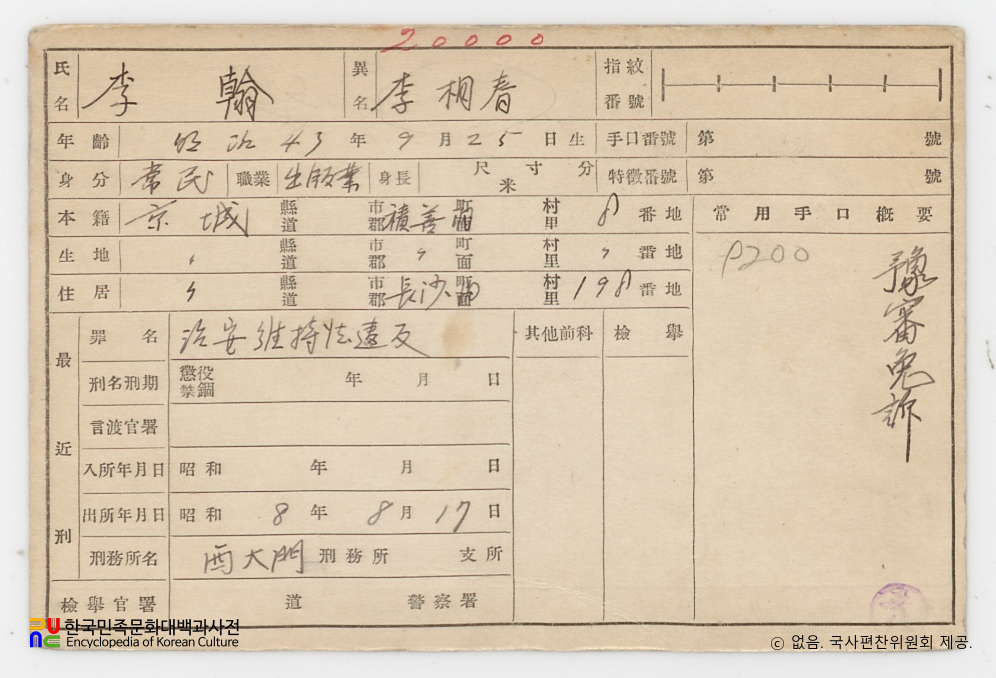 20000
氏名 李 翰 異名 李相春 指紋番號
年齡 明治43年9月25日生 手口番號 第 號
身分 常民 職業 出版業 身長 尺寸分 米 特徵番號 第 號
本籍 京城 縣道 市郡 積善 町面 村里 8 番地 常用手口槪要
生地 〃 縣道 市郡 〃 町面 村里 〃 番地 P200
住居 〃 縣道 市郡 長沙 町面 村里 198 番地
豫審免訴
最近刑
罪名 治安維持法違反 其他前科 檢擧
刑名刑期 懲役 禁錮 年 月 日
言渡官署
入所年月日 昭和 年 月 日
出所年月日 昭和 8年 8月 17日
刑務所名 西大門 刑務所 支所
檢擧官署 道 警察署
한국민족문화대백과사전
Encyclopedia of Korean Culture
© 없음. 국사편찬위원회 제공.